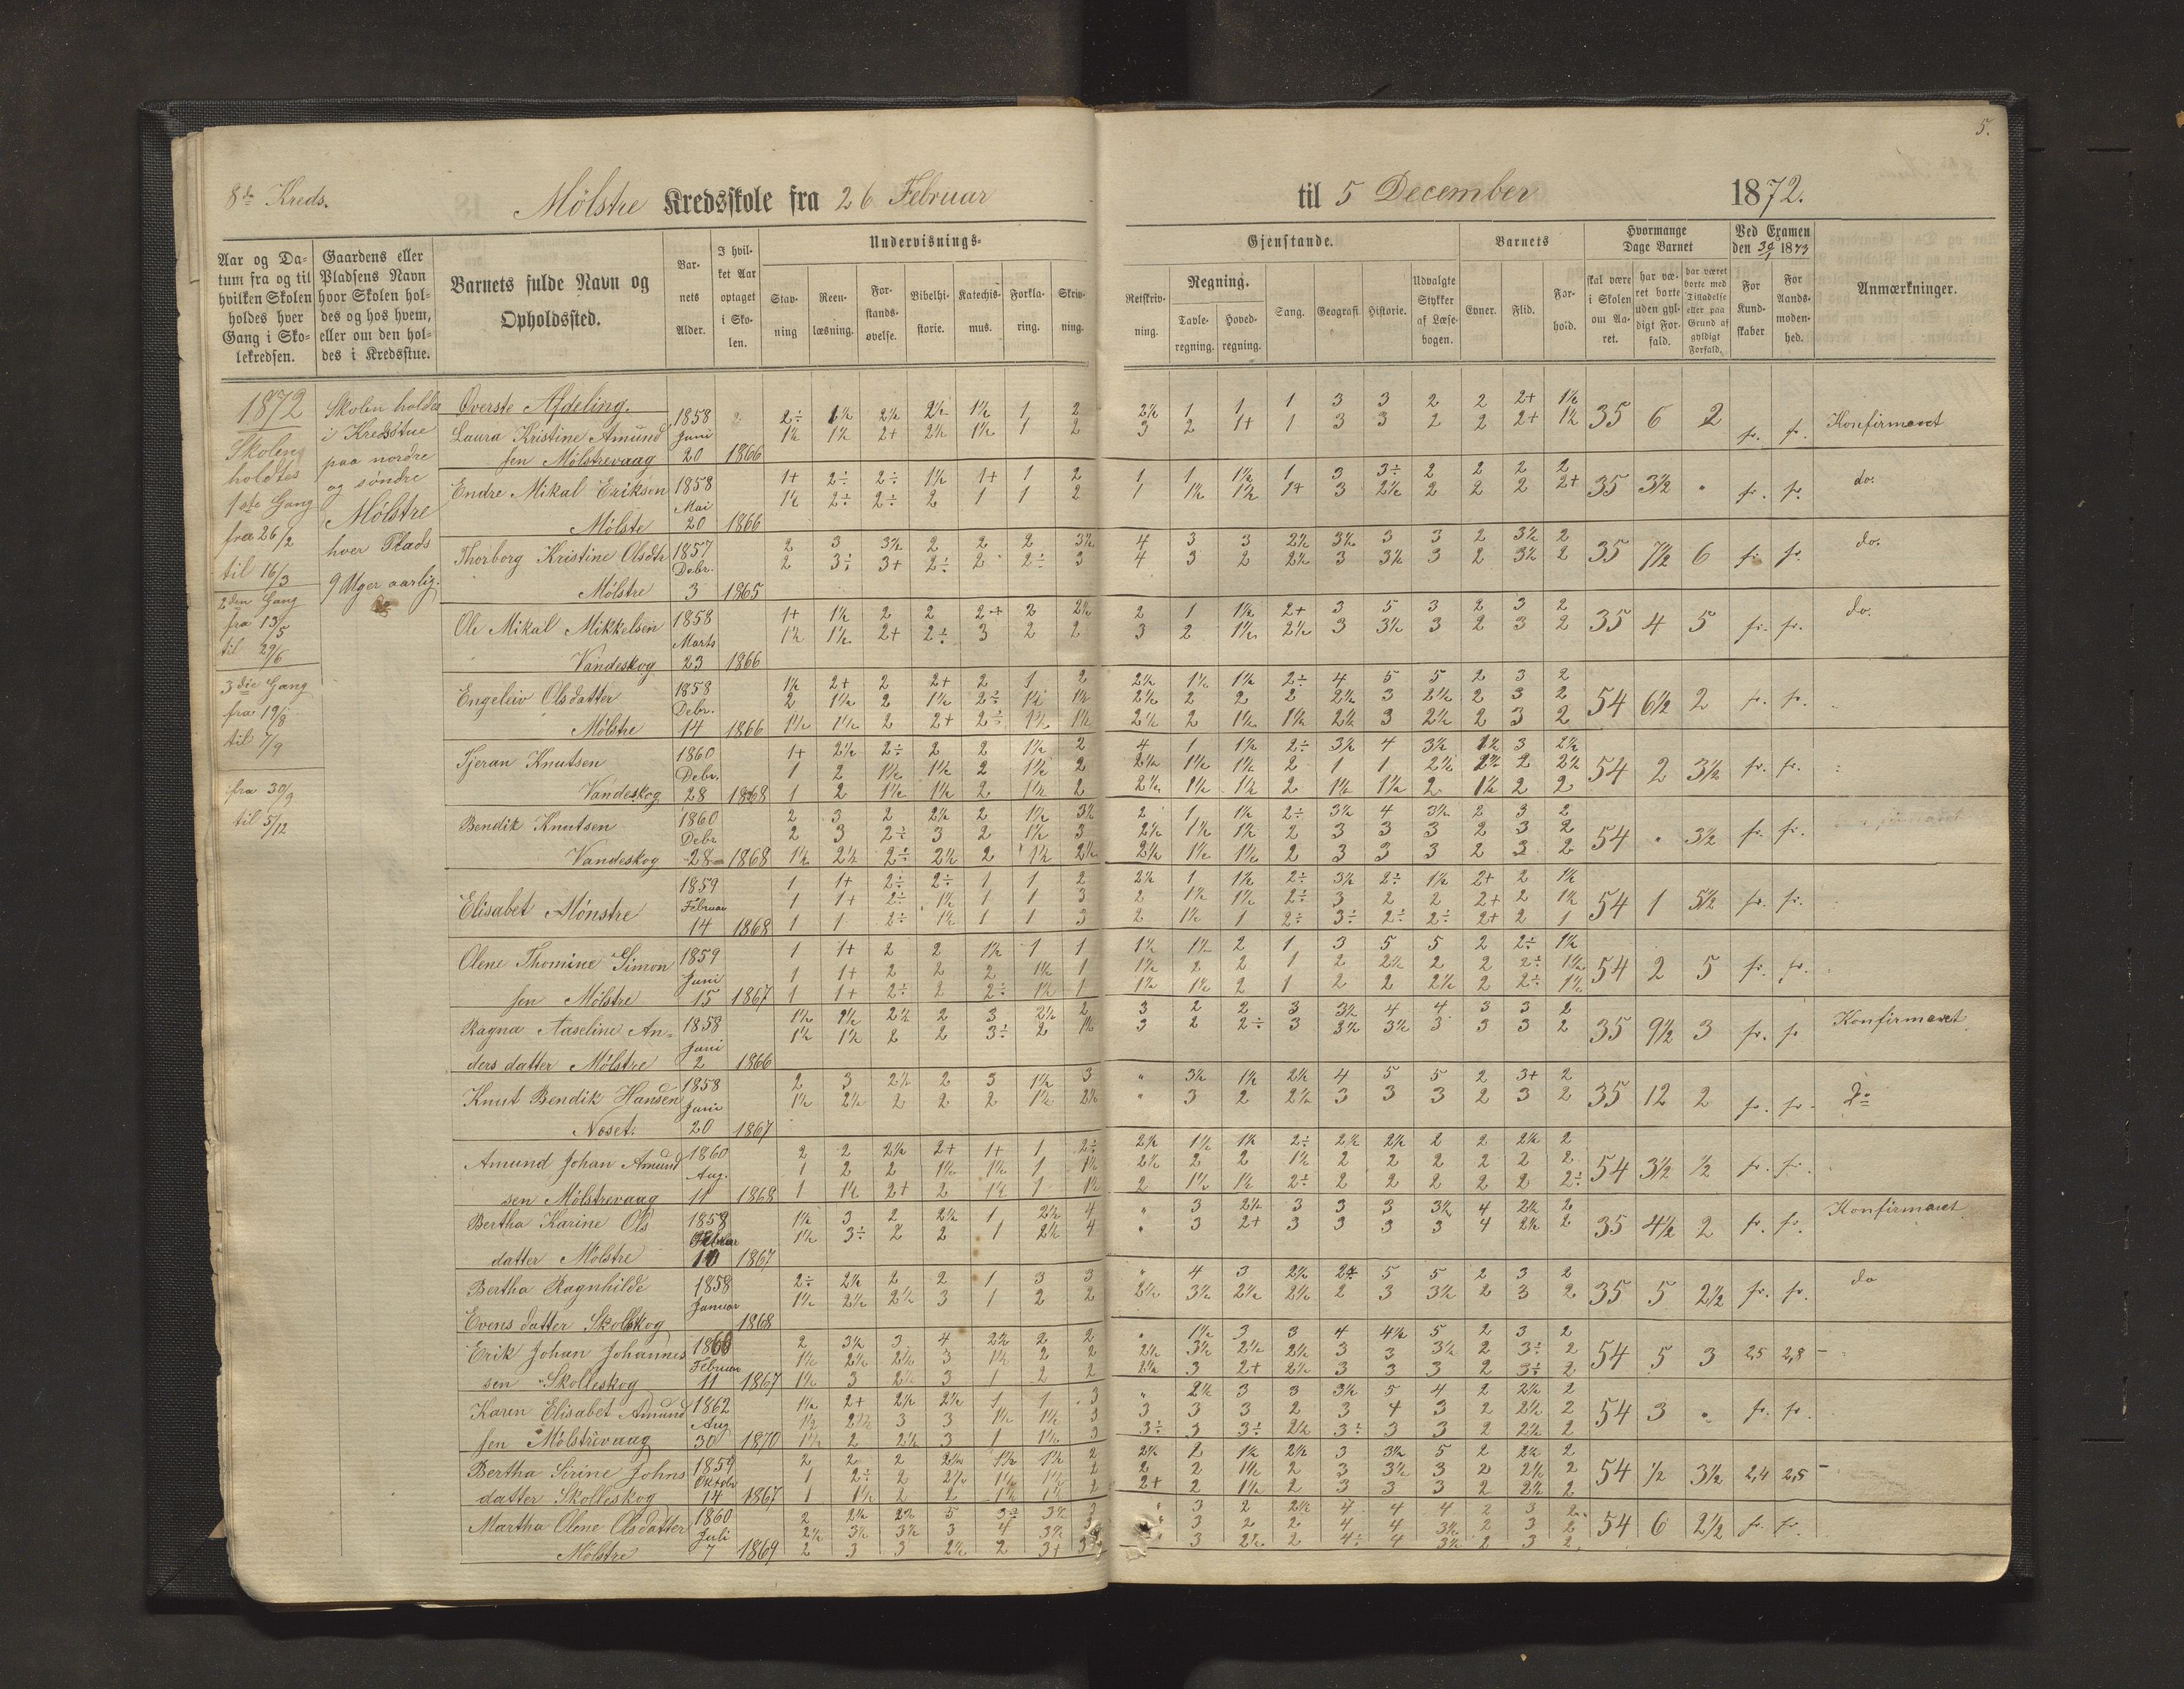 5.
8de Kreds.
Mølstre Kredsskole fra 26 Februar til 5 December 1872.
Aar og Datum fra og til hvilken Skolen holdes hver Gang i Skolekredsen.
Gaardens eller Pladsens Navn hvor Skolen holdes og hos hvem, eller om den holdes i Kredsstue.
Barnets fulde Navn og Opholdssted.
Barnets Alder.
I hvilket Aar optaget i Skolen.
Undervisnings- Gjenstande.
Stavning
Reenlæsning.
Forstandsøvelse.
Bibelhistorie.
Katechismus.
Forklaring.
Skrivning.
Retskrivning.
Regning.
Tavleregning.
Hovedregning.
Sang.
Geografi.
Historie.
Udvalgte Stykker af Læsebogen.
Barnets
Evner.
Flid.
Forhold.
Hvormange Dage Barnet
skal være i Skolen om Aaret.
har været borte uden gyldigt Forfald.
har været borte med Tilladelse eller paa Grund af gyldigt Forfald.
Ved Examen den 30/1 1873
For Kundskaber
For Aandsmodenhed.
Anmærkninger.
1872
Skolen holdtes
1ste Gang
fra 26/2
til 16/3
2den Gang
fra 13/5
til 29/6
3die Gang
fra 19/8
til 7/9
fra 30/9
til 5/12
Skolen holdes
i Kredsstue
paa nordre
og søndre
Mølstre
hver Plads
9 Uger aarlig.
Øverste Afdeling.
Laura Kristine Amundsen Mølstrevaag 1858 Juni 20 1866
2÷ 1½ 2½ 2½ 1½ 1 2 2½ 1 1 1 3 3 2 2 2+ 1½
1½ 1½ 2+ 2½ 1½ 1 2 3 2 1+ 1 3 3 2 2 2+ 1½
35 6 2 fr. fr. Konfirmeret
Endre Mikal Eriksen Mølste 1858 Mai 20 1866
1+ 2÷ 2÷ 1½ 1+ 1 2 1 1 1½ 1 3 3÷ 2 2 2 2
1½ 2÷ 2÷ 2 1 1 2 1 1½ 1½ 1+ 3 2½ 2 2 2 2+
35 3½ " fr. fr. do.
Thorborg Kristine Olsdtr Mølstre 1857 Debr. 3 1865
2 3 3½ 2 2 2 3½ 4 3 3 2½ 3½ 3 3 2 3½ 2
2 3÷ 3+ 2÷ 2 2÷ 3 4 3 2 2½ 3 3½ 3 2 3½ 2
35 7½ 6 fr. fr. do.
Ole Mikal Mikkelsen Vandeskog 1858 Marts 23 1866
1+ 1½ 2 2 2+ 2 2½ 2 1 1½ 2+ 3 5 3 2 3 2
1½ 1½ 2+ 2÷ 3 2 2 3 2 1½ 2½ 3 3½ 3 2 3 2
35 4 5 fr. fr. do.
Engeleiv Olsdatter Mølstre 1858 Debr. 14 1866
1½ 2+ 2 2+ 2 1 2 2½ 1½ 1½ 2÷ 4 5 5 2 3 2
2 1½ 2 1½ 2÷ 1½ 1½ 2½ 2 2 2 2½ 3 2½ 2 3 2
1½ 1½ 2 2+ 2÷ 1½ 1½ 2½ 2 1½ 1½ 2½ 3 2½ 2 3 2
54 6½ 2 fr. fr.
Tjeran Knutsen Vandeskog 1860 Debr. 28 1868
1+ 2½ 2÷ 2 2 1½ 2 4 1 1½ 2÷ 3½ 4 3½ 1½ 3 2½
1 2 1½ 1½ 2 1½ 2 2½ 1½ 1½ 2 1 1 2½ 2½ 2 2½
1 2 1½ 1½ 2 1½ 2 2½ 1½ 1½ 2 1½ 1½ 2 1½ 2 2
54 2 3½ fr. fr.
Bendik Knutsen Vandeskog 1860 Debr 28 1868
2 3 2 2½ 2 1½ 3½ 2 1 1½ 2÷ 3½ 4 3½ 2 3 2
2 3 2÷ 3 2 1½ 3 2½ 1½ 1½ 2 3 3 3 2 3 2
1½ 2½ 2÷ 2½ 2 1½ 2½ 2½ 1½ 1½ 2 3 3 3 2 3 2
54 " 3½ fr. fr.
Elisabet Mønstre 1859 Februar 14 1868
1 1+ 2÷ 2÷ 1 1 2 2½ 1 1½ 2÷ 3½ 2÷ 1½ 2+ 2 1½
1 1+ 2÷ 1½ 1 1 3 2 1½ 1½ 2÷ 3 2 2 2+ 2 1½
1 1 2÷ 1½ 1 1 3 2 1½ 1 2÷ 3÷ 2÷ 2÷ 2+ 2 1
54 1 5½ fr. fr.
Olene Thomine Simonsen Mølstre 1859 Juni 15 1867
1 1+ 2 2 1½ 1 1 1½ 1½ 2 1 3 5 5 2 2÷ 1½
1 1+ 2 2 2 1½ 1 1½ 2 2 1 2 2½ 2 2 2÷ 1½
1 1+ 2÷ 2 2÷ 1½ 1 1½ 1½ 2 1 2 2 2½ 2 2÷ 1½
54 2 5 fr. fr.
Ragna Aaseline Andersdatter Mølstre 1858 Juni 2 1866
1½ 1½ 2½ 2 3 2½ 2 3 2 2 3 3½ 4 4 3 3 2
1½ 1½ 2 2 3÷ 2 1½ 3 2 2÷ 3 3½ 3½ 3 3 3 2
35 9½ 3 fr. fr Konfirmeret
Knut Bendik Hansen Noset. 1858 Juni 20 1867
2 3 2½ 2 3 1½ 3 " 3½ 1½ 2½ 4 5 5 2 3+ 2
1½ 2½ 2 2 2 1½ 2½ " 3 2 2½ 3 3 3 2 3 2
35 12 2 fr. fr. Do
Amund Johan Amundsen Mølstrevaag 1860 Aug. 11 1868
2 2 2½ 2+ 1+ 1 2÷ 2½ 1½ 1½ 2÷ 2½ 2½ 2 2 2½ 2
1 2 2 1½ 1½ 1 1½ 2½ 2 2 1½ 2 2 2 2 2 2
1 1½ 2+ 2 1½ 1 1½ 2 1½ 1½ 2÷ 2 2 2 2 2 2÷
54 3½ ½ fr. fr.
Bertha Karine Olsdatter Mølstre 1858 10 1867
1½ 3 2 2½ 1 2½ 4 " 3 2½ 3 3 3 3½ 4 2½ 2
1½ 3÷ 2 2 1 2½ 4 " 3 2+ 3 3 3 3 4 2½ 2
35 4½ 2 fr. fr. Konfirmeret
Bertha Ragnhilde Evensdatter Skolleskog 1858 Januar 1868
2÷ 2½ 2 2 1 3 3 " 4 3 2½ 2÷ 5 5 2 3 2
1½ 2½ 2½ 3 1 2 2 2½ 3½ 2½ 2½ 2 3 3½ 2 3 2
35 5 2½ fr. fr. do
Erik Johan Johannessen Skolleskog 1860 Februar 11 1867
2 3½ 3 4 2½ 2 2 " 1½ 3 3 4 4½ 5 2 3 2
1½ 2½ 2½ 3 1½ 2 2 2½ 3½ 2½ 2½ 3 3 3½ 2 3÷ 2
1½ 3 2½ 3 1 2 2 2½ 3 2+ 2½ 3 3 3 2 3÷ 2
54 5 3 2,5 2,8
Karen Elisabet Amundsen Mølstrevaag 1862 Aug 30 1870
1½ 2+ 2½ 2½ 1 1 3 " 2½ 3 3 3½ 5 4 2 2½ 2
1½ 2½ 3 3 1½ 1½ 3 3 3 3 2 3 4 3 2 2½ 2
1½ 2 2½ 3 1 1½ 3 3÷ 3 3÷ 2½ 3÷ 3 3 2 2½ 2
54 3 " fr. fr.
Bertha Sirine Johnsdatter Skolleskog 1859 Oktobr 14 1867
2 2 2 2½ 1½ 1½ 2 2½ 2 1½ 2½ 3 3½ 5 2 2½ 2
1 2÷ 2 2½ 1½ 1½ 2 2 2 1½ 2 3 3½ 3 2 2½ 2
1 1½ 2 2 1½ 1½ 2 2+ 2 1½ 2 3 3 3 2 2½ 2
54 ½ 3½ 2,4 2,5
Martha Olene Olsdatter Mølstre 1860 Juli 7 1869
2 2½ 2½ 5 3÷ 3½ 3 " 3 2 2½ 4 4 4 2 3 2
2½ 3½ 3½ 3 4 3½ 3 " 3 2 2 4 4 3½ 2 3 2
2 3 3 2½ 2 3+ 3 3 2½ 2 4÷ 4 3½ 2 3 2
54 6 2½ fr. fr.